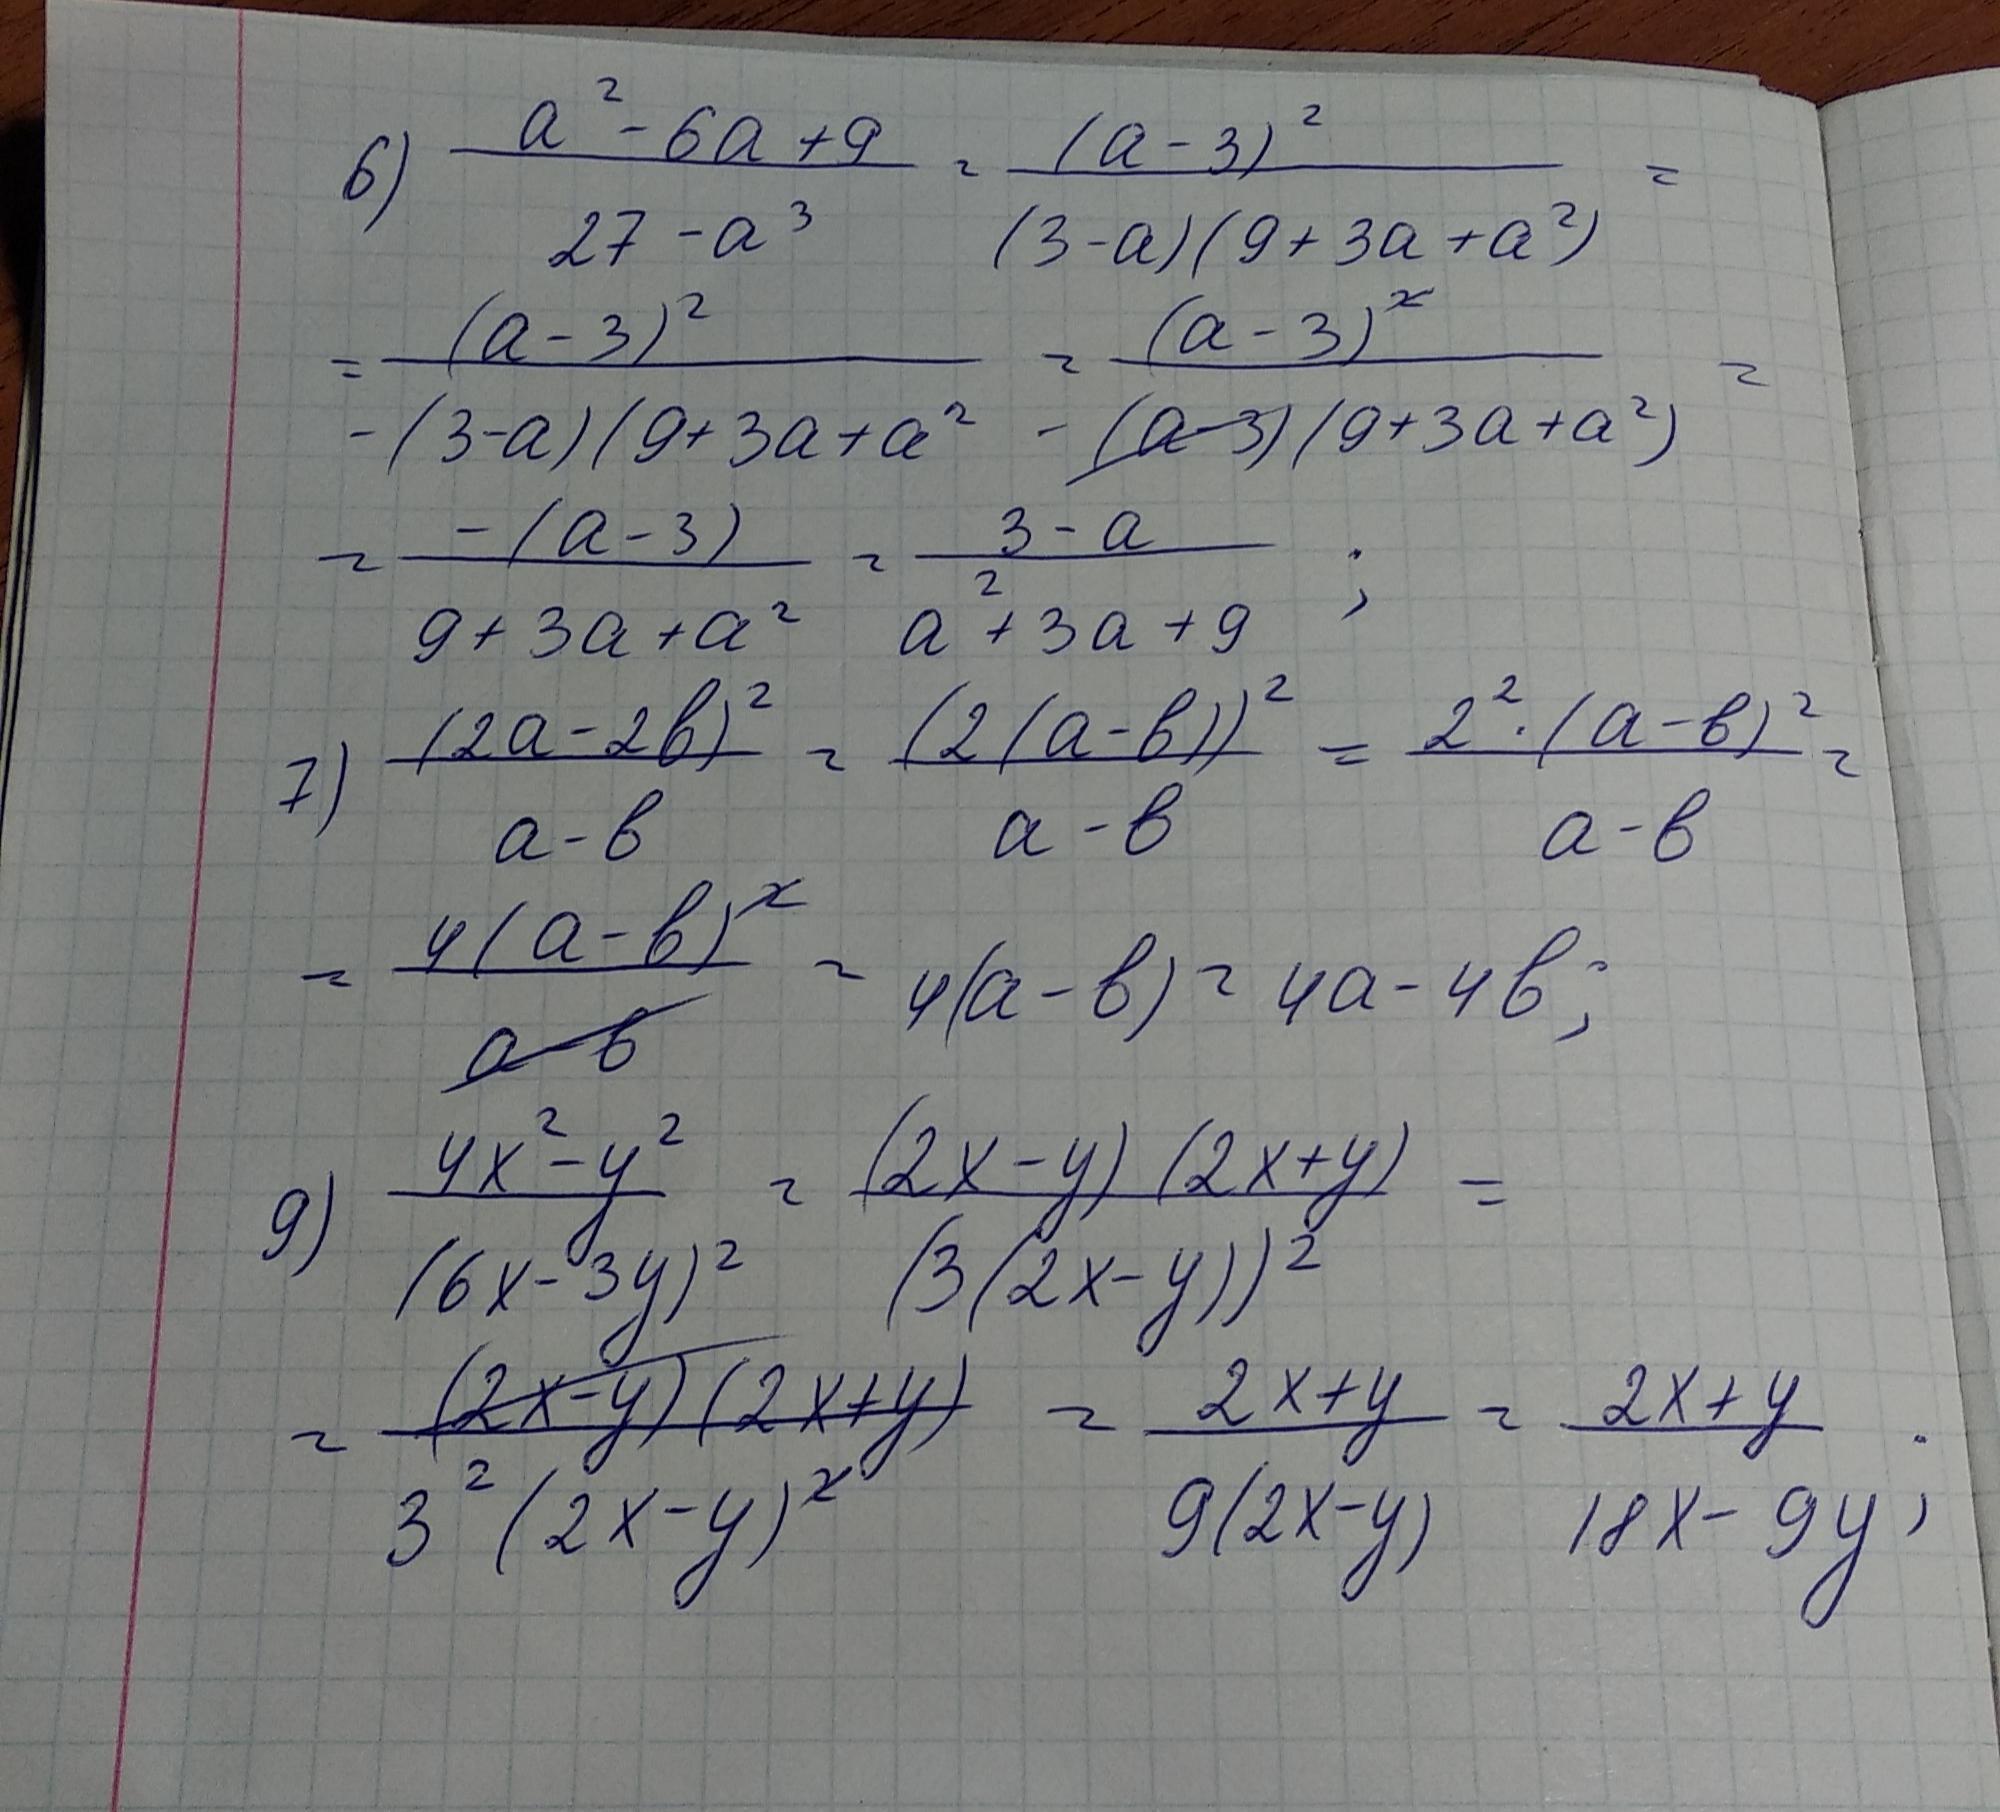 6) (a² - 6a + 9)/(27 - a³) = (a - 3)²/((3 - a)(9 + 3a + a²)) =
= (a - 3)²/(-(3 - a)(9 + 3a + a²) = (a - 3)²/(-(a - 3)(9 + 3a + a²)) =
= -(a - 3)/(9 + 3a + a²) = (3 - a)/(a² + 3a + 9) ;
7) (2a - 2b)²/(a - b) = (2(a - b))²/(a - b) = 2² · (a - b)²/(a - b) =
= 4(a - b)²/(a - b) = 4(a - b) = 4a - 4b ;
9) (4x² - y²)/(6x - 3y)² = (2x - y)(2x + y)/(3(2x - y))² =
= (2x - y)(2x + y)/(3²(2x - y)²) = (2x + y)/(9(2x - y)) = (2x + y)/(18x - 9y) ;